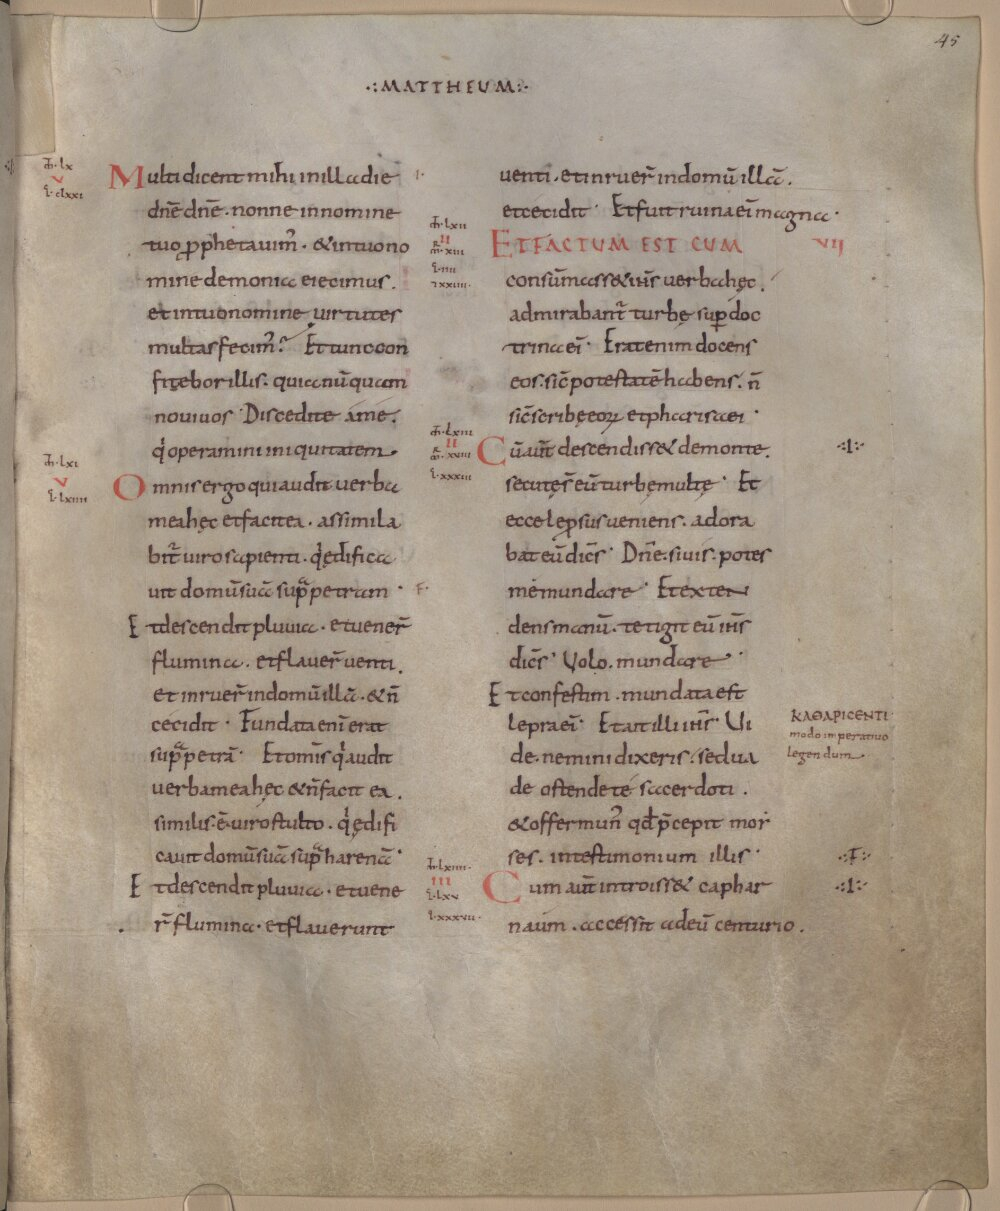 45
·:MATTHEUM:·
M·lx
V
L·clxxi
Multi dicent mihi in illa die
dn̄e dn̄e. nonne in nomine
tuo ꝓphetauim̄. & in tuo no
mine demonia eiecimus.
et in tuo nomine uirtutes
multas fecim̄? Et tunc con
fitebor illis. quia nū quam
noui uos· Discedite a me.
q̇ operamini iniquitatem
M·lxi
V
L·lxiiii
Omnis ergo qui audit uerba
mea hęc et facit ea. assimila
bit̄ uiro sapienti. q̇ ędifica
uit domū suā sup̄ petram· F·
Et descendit pluuia. et uener̄
flumina. et flauer̄ uenti.
et inruer̄ in domū illā. & n̄
cecidit· Fundata eni erat
sup̄ petrā· Et omīs q̇ audit
uerba mea hęc & n̄ facit ea.
similis ē uiro stulto. q̇ ędifi
cauit domū suā sup̄ harenā·
Et descendit pluuia. et uene
r̄ flumina. et flauerunt
uenti. et inruer̄ in domū illā.
et cecidit· Et fuit ruina ei magna·
M·lxii
II
mr·xiii
L·iiii
7 xxiiii
ET FACTUM EST CUM VII
consūmass& ih̄s uerba hęc.
admirabant̄ turbę sup̄ doc
trina ei· Erat enim docens
eos. sic̄ potestatē habens. n̄
sic̄ scribę eoꝝ et pharisaei·
M·lxiii
II
mr·xviii
L·xxxiii
Cū aut̄ descendiss& de monte. ·:I:·
secutęs̄ eū turbę multę· Et
ecce leprsus ueniens. adora
bat eū dic̄s· Dn̄e. si uis. potes
me mundare· Et exten
dens manū. tetigit eū ih̄s
dic̄s· Uolo. mundare·
Et confestim. mundata est
lepra ei· Et ait illi ih̄s· Ui
de. nemini dixeris. sed ua
de ostende te sacerdoti.
& offer mun̄ qd̄ p̄cepit moy
ses. in testimonium illis· ·:F:·
ΚΑΘΑΡΙCΕΝΤΙ
modo imperatiuo
legendum
M·lxiiii·
III
L·lxv
L·xxxvii·
Cum aut̄ introiss& caphar ·:I:·
naum. accessit ad eū centurio.